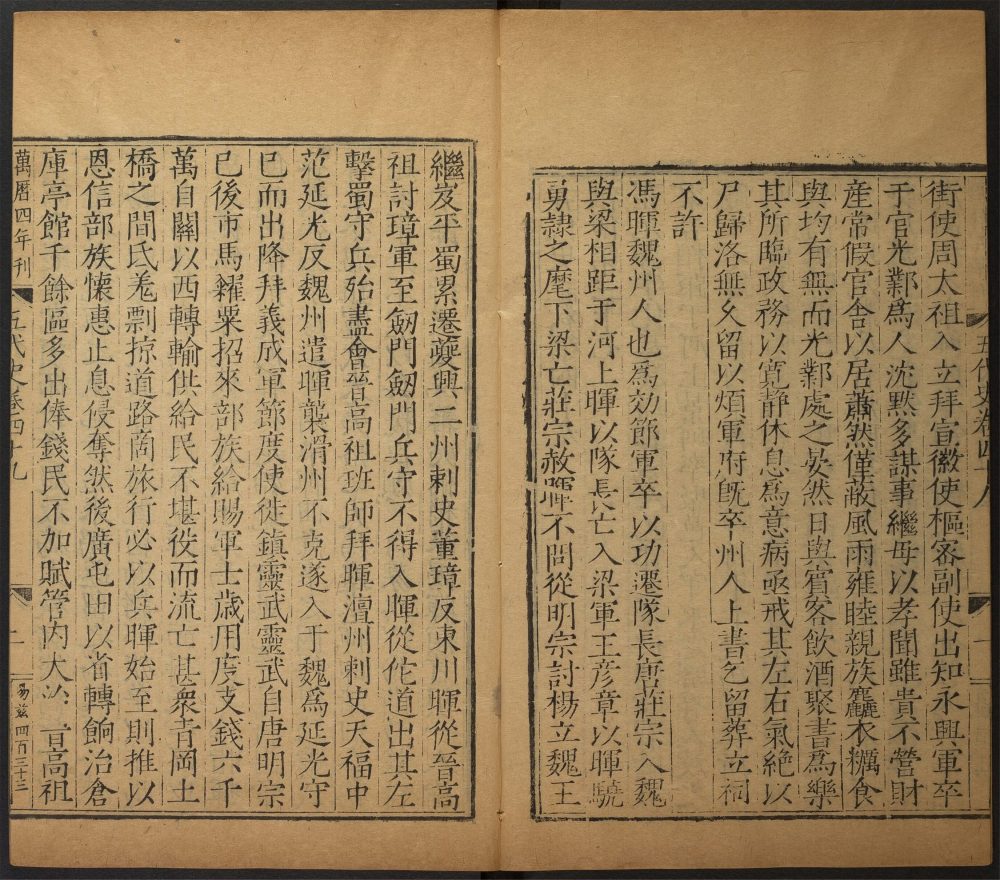 五代史卷四十八
街使周太祖入立拜宣徽使樞密副使出知永興軍卒
于官光鄴爲人沈黙多謀事繼母以孝聞雖貴不營財
產常假官舍以居蕭然僅蔽風雨雍睦親族麤衣糲食
與均有無而光鄴處之晏然日與賓客飲酒聚書爲樂
其所臨政務以寛静休息爲意病亟戒其左右氣絶以
尸歸洛無乆留以煩軍府旣卒州人上書乞留葬立祠
不許
馮暉魏州人也爲効節軍卒以功遷隊長唐莊宗入魏
與梁相距于河上暉以隊長亡入梁軍王彦章以暉驍
勇隷之麾下梁亡莊宗赦暉不問從明宗討楊立魏王
繼岌平蜀累遷夔興二州剌史董璋反東川暉從晉高
祖討璋軍至劔門劔門兵守不得入暉從佗道出其左
擊蜀守兵殆盡會晉高祖班師拜暉澶州剌史天福中
范延光反魏州遣暉襲滑州不克遂入于魏爲延光守
巳而出降拜義成軍節度使徙鎮靈武靈武自唐明宗
巳後市馬糴粟招來部族給賜軍士歲用度支錢六千
萬自關以西轉輸供給民不堪役而流亡甚衆青岡土
橋之間氐羌剽掠道路商旅行必以兵暉始至則推以
恩信部族懷惠止息侵奪然後廣屯田以省轉餉治倉
庫亭館千餘區多出俸錢民不加賦管内大治 高祖
萬曆四年刊
五代史卷四十九
一
易兹四百三十三